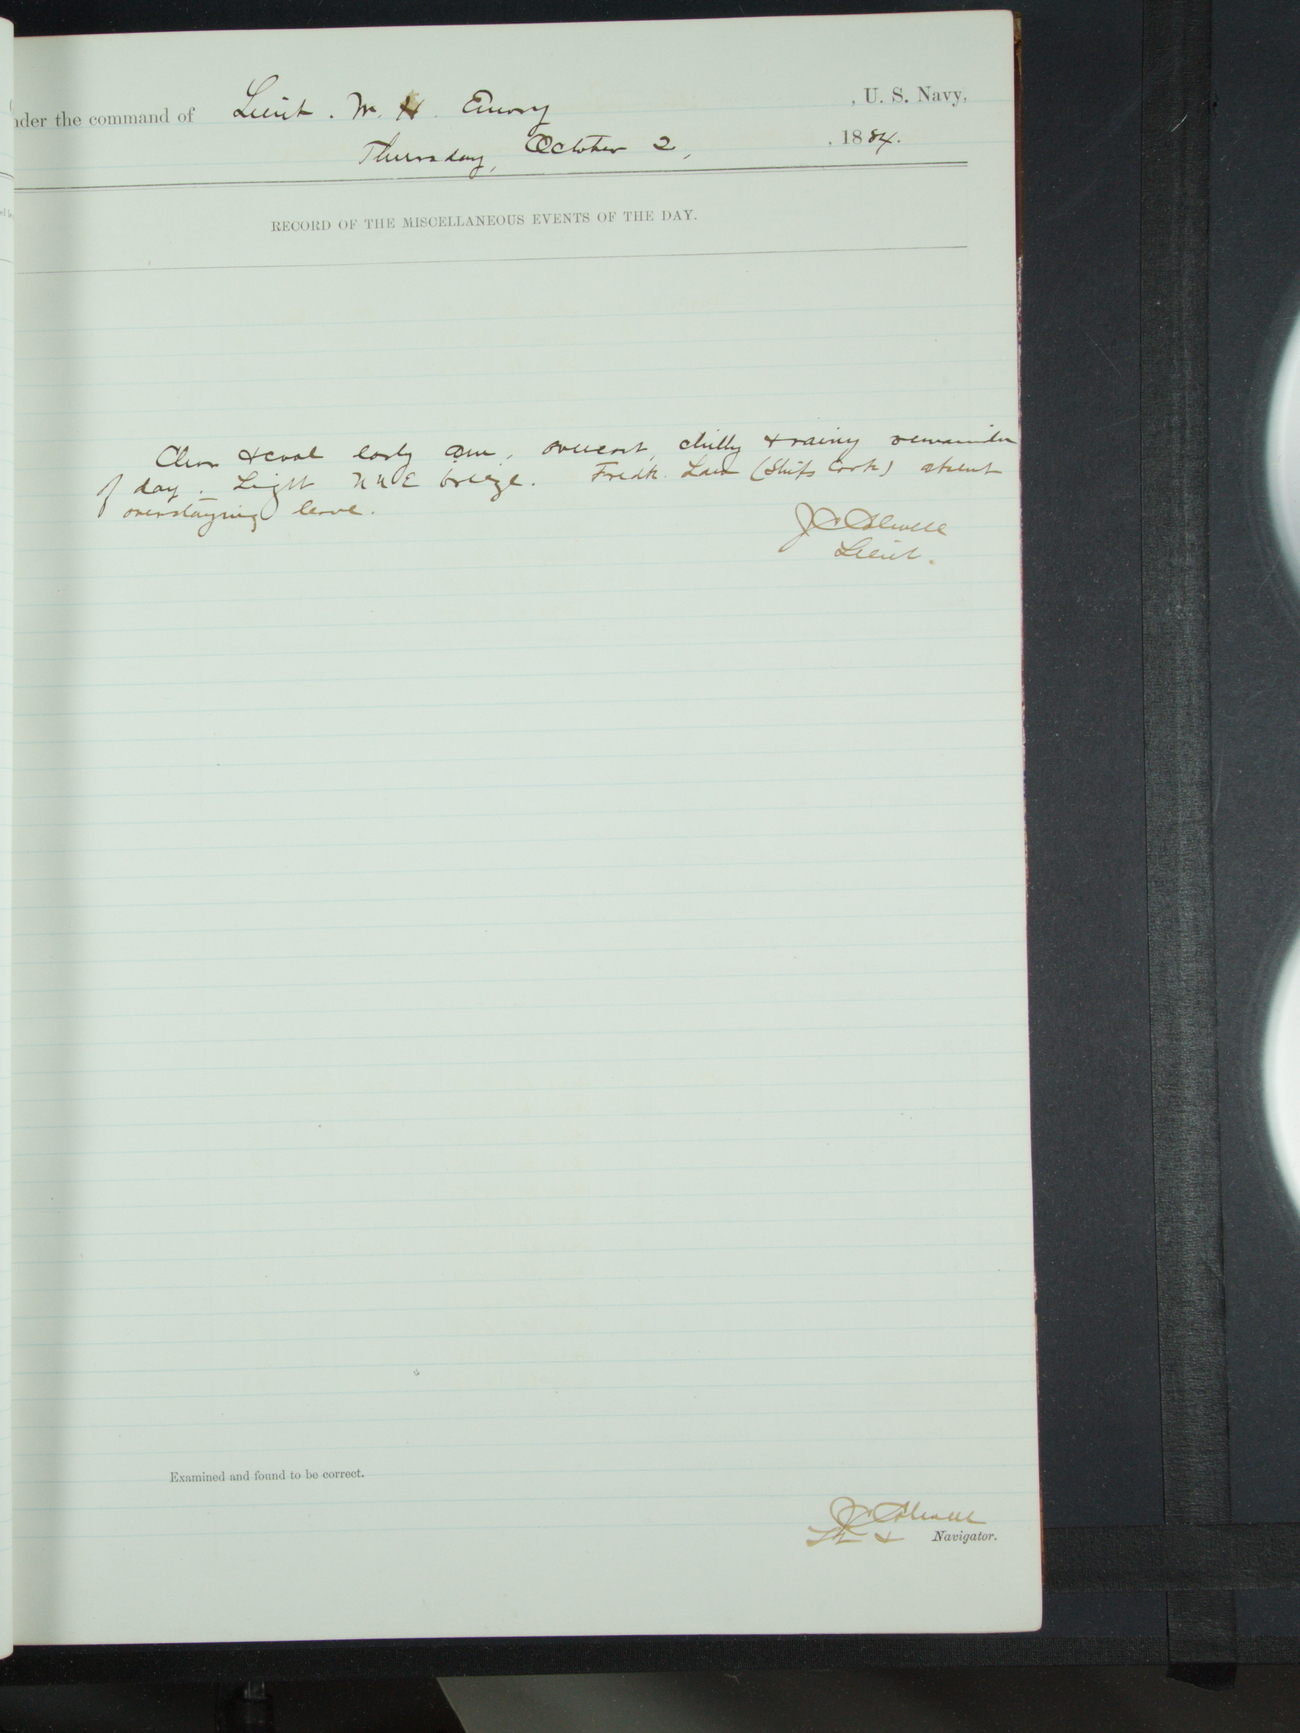 nder the command of Lieut. W. H. Emory , U. S. Navy,
Thursday, October 2, , 1884.
RECORD OF THE MISCELLANEOUS EVENTS OF THE DAY.
Clear & cool early am, overcast, chilly & rainy remainder
of day. Light NNE breeze. Fredk. (Ships Cook) absent
overstaying leave.
J C Colwell
Lieut.
Examined and found to be correct.
J C Colwell
Lt & Navigator.